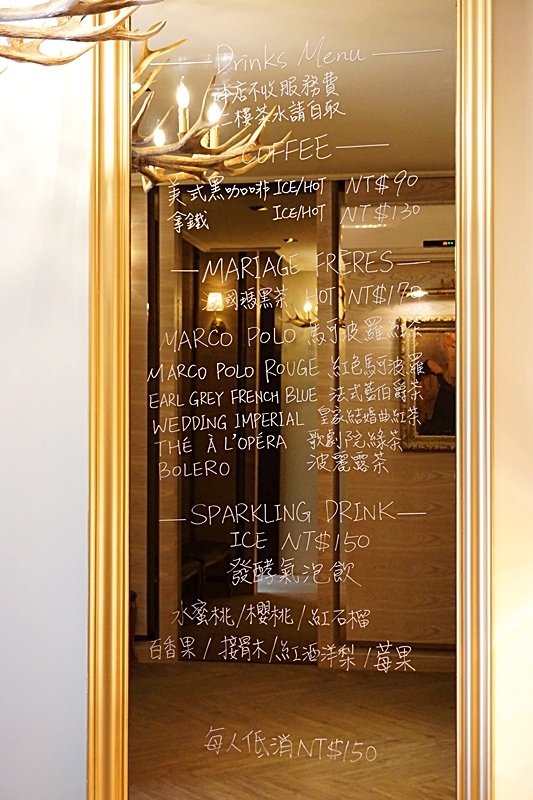 Drinks Menu
本店不收服務費
二樓茶水請自取
COFFEE
美式黑咖啡 ICE/HOT NT$90
拿鐵 ICE/HOT NT$130
MARIAGE FRÈRES
法國瑪黑茶 HOT NT$170
MARCO POLO 馬可波羅紅茶
MARCO POLO ROUGE 紅色馬可波羅
EARL GREY FRENCH BLUE 法式藍伯爵茶
WEDDING IMPERIAL 皇家結婚曲紅茶
THÉ À L'OPÉRA 歌劇院綠茶
BOLERO 波麗露茶
SPARKLING DRINK
ICE NT$150
發酵氣泡飲
水蜜桃/櫻桃/紅石榴
百香果/接骨木/紅酒洋梨/莓果
每人低消NT$150